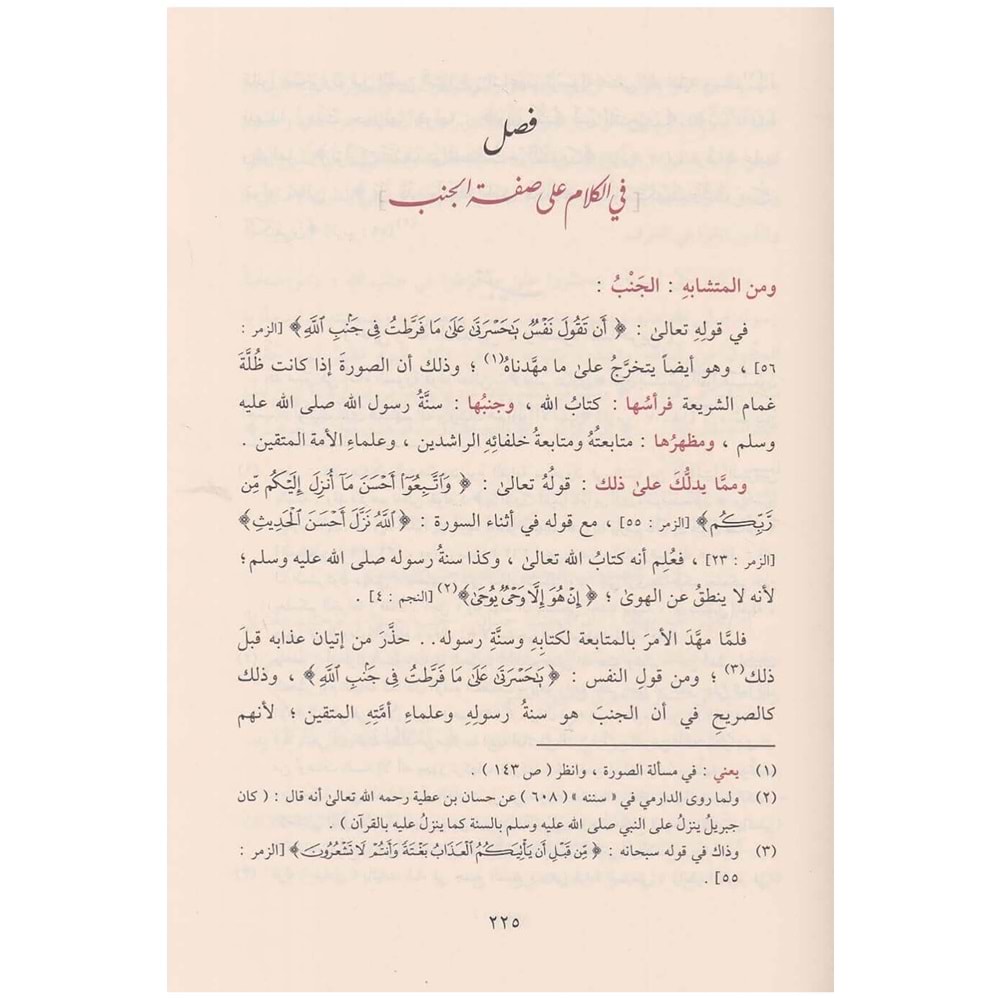 فصل
[في الكلام على صفة الجنب]
ومن المتشابهِ : الجَنْبُ :
في قولِهِ تعالىٰ : ﴿ أَن تَقُولَ نَفْسٌ يَٰحَسْرَتَىٰ عَلَىٰ مَا فَرَّطتُ فِى جَنۢبِ ٱللَّهِ ﴾ [الزمر :
٥٦] ، وهو أيضاً يتخرَّجُ علىٰ ما مهَّدناهُ(١) ؛ وذلك أن الصورةَ إذا كانت ظُلَّةَ
غمام الشريعة فرأسُها : كتابُ الله ، وجنبُها : سنَّةُ رسول الله صلى الله عليه
وسلم ، ومظهرُها : متابعتُهُ ومتابعةُ خلفائِهِ الراشدين ، وعلماءِ الأمة المتقين .
وممَّا يدلُّكَ علىٰ ذلك : قولُهُ تعالىٰ : ﴿ وَٱتَّبِعُوٓا۟ أَحْسَنَ مَآ أُنزِلَ إِلَيْكُم مِّن
رَّبِّكُم ﴾ [الزمر : ٥٥] ، مع قوله في أثناء السورة : ﴿ ٱللَّهُ نَزَّلَ أَحْسَنَ ٱلْحَدِيثِ ﴾
[الزمر : ٢٣] ، فعُلِم أنه كتابُ الله تعالىٰ ، وكذا سنةُ رسوله صلى الله عليه وسلم ؛
لأنه لا ينطقُ عن الهوىٰ ؛ ﴿ إِنْ هُوَ إِلَّا وَحْىٌ يُوحَىٰ ﴾(٢) [النجم : ٤] .
فلمَّا مهَّدَ الأمرَ بالمتابعة لكتابِهِ وسنَّةِ رسوله . . حذَّرَ من إتيان عذابه قبلَ
ذلك(٣) ؛ ومن قولِ النفس : ﴿ يَٰحَسْرَتَىٰ عَلَىٰ مَا فَرَّطتُ فِى جَنۢبِ ٱللَّهِ ﴾ ، وذلك
كالصريحِ في أن الجنبَ هو سنةُ رسولِهِ وعلماءِ أمَّتِهِ المتقين ؛ لأنهم
(١) يعني : في مسألة الصورة ، وانظر ( ص ١٤٣ ) .
(٢) ولما روى الدارمي في « سننه » ( ٦٠٨ ) عن حسان بن عطية رحمه الله تعالىٰ أنه قال : ( كان
جبريلُ ينزلُ على النبي صلى الله عليه وسلم بالسنة كما ينزلُ عليه بالقرآن ) .
(٣) وذاك في قوله سبحانه : ﴿ مِّن قَبْلِ أَن يَأْتِيَكُمُ ٱلْعَذَابُ بَغْتَةً وَأَنتُمْ لَا تَشْعُرُونَ ﴾ [الزمر :
٥٥] .
٢٢٥